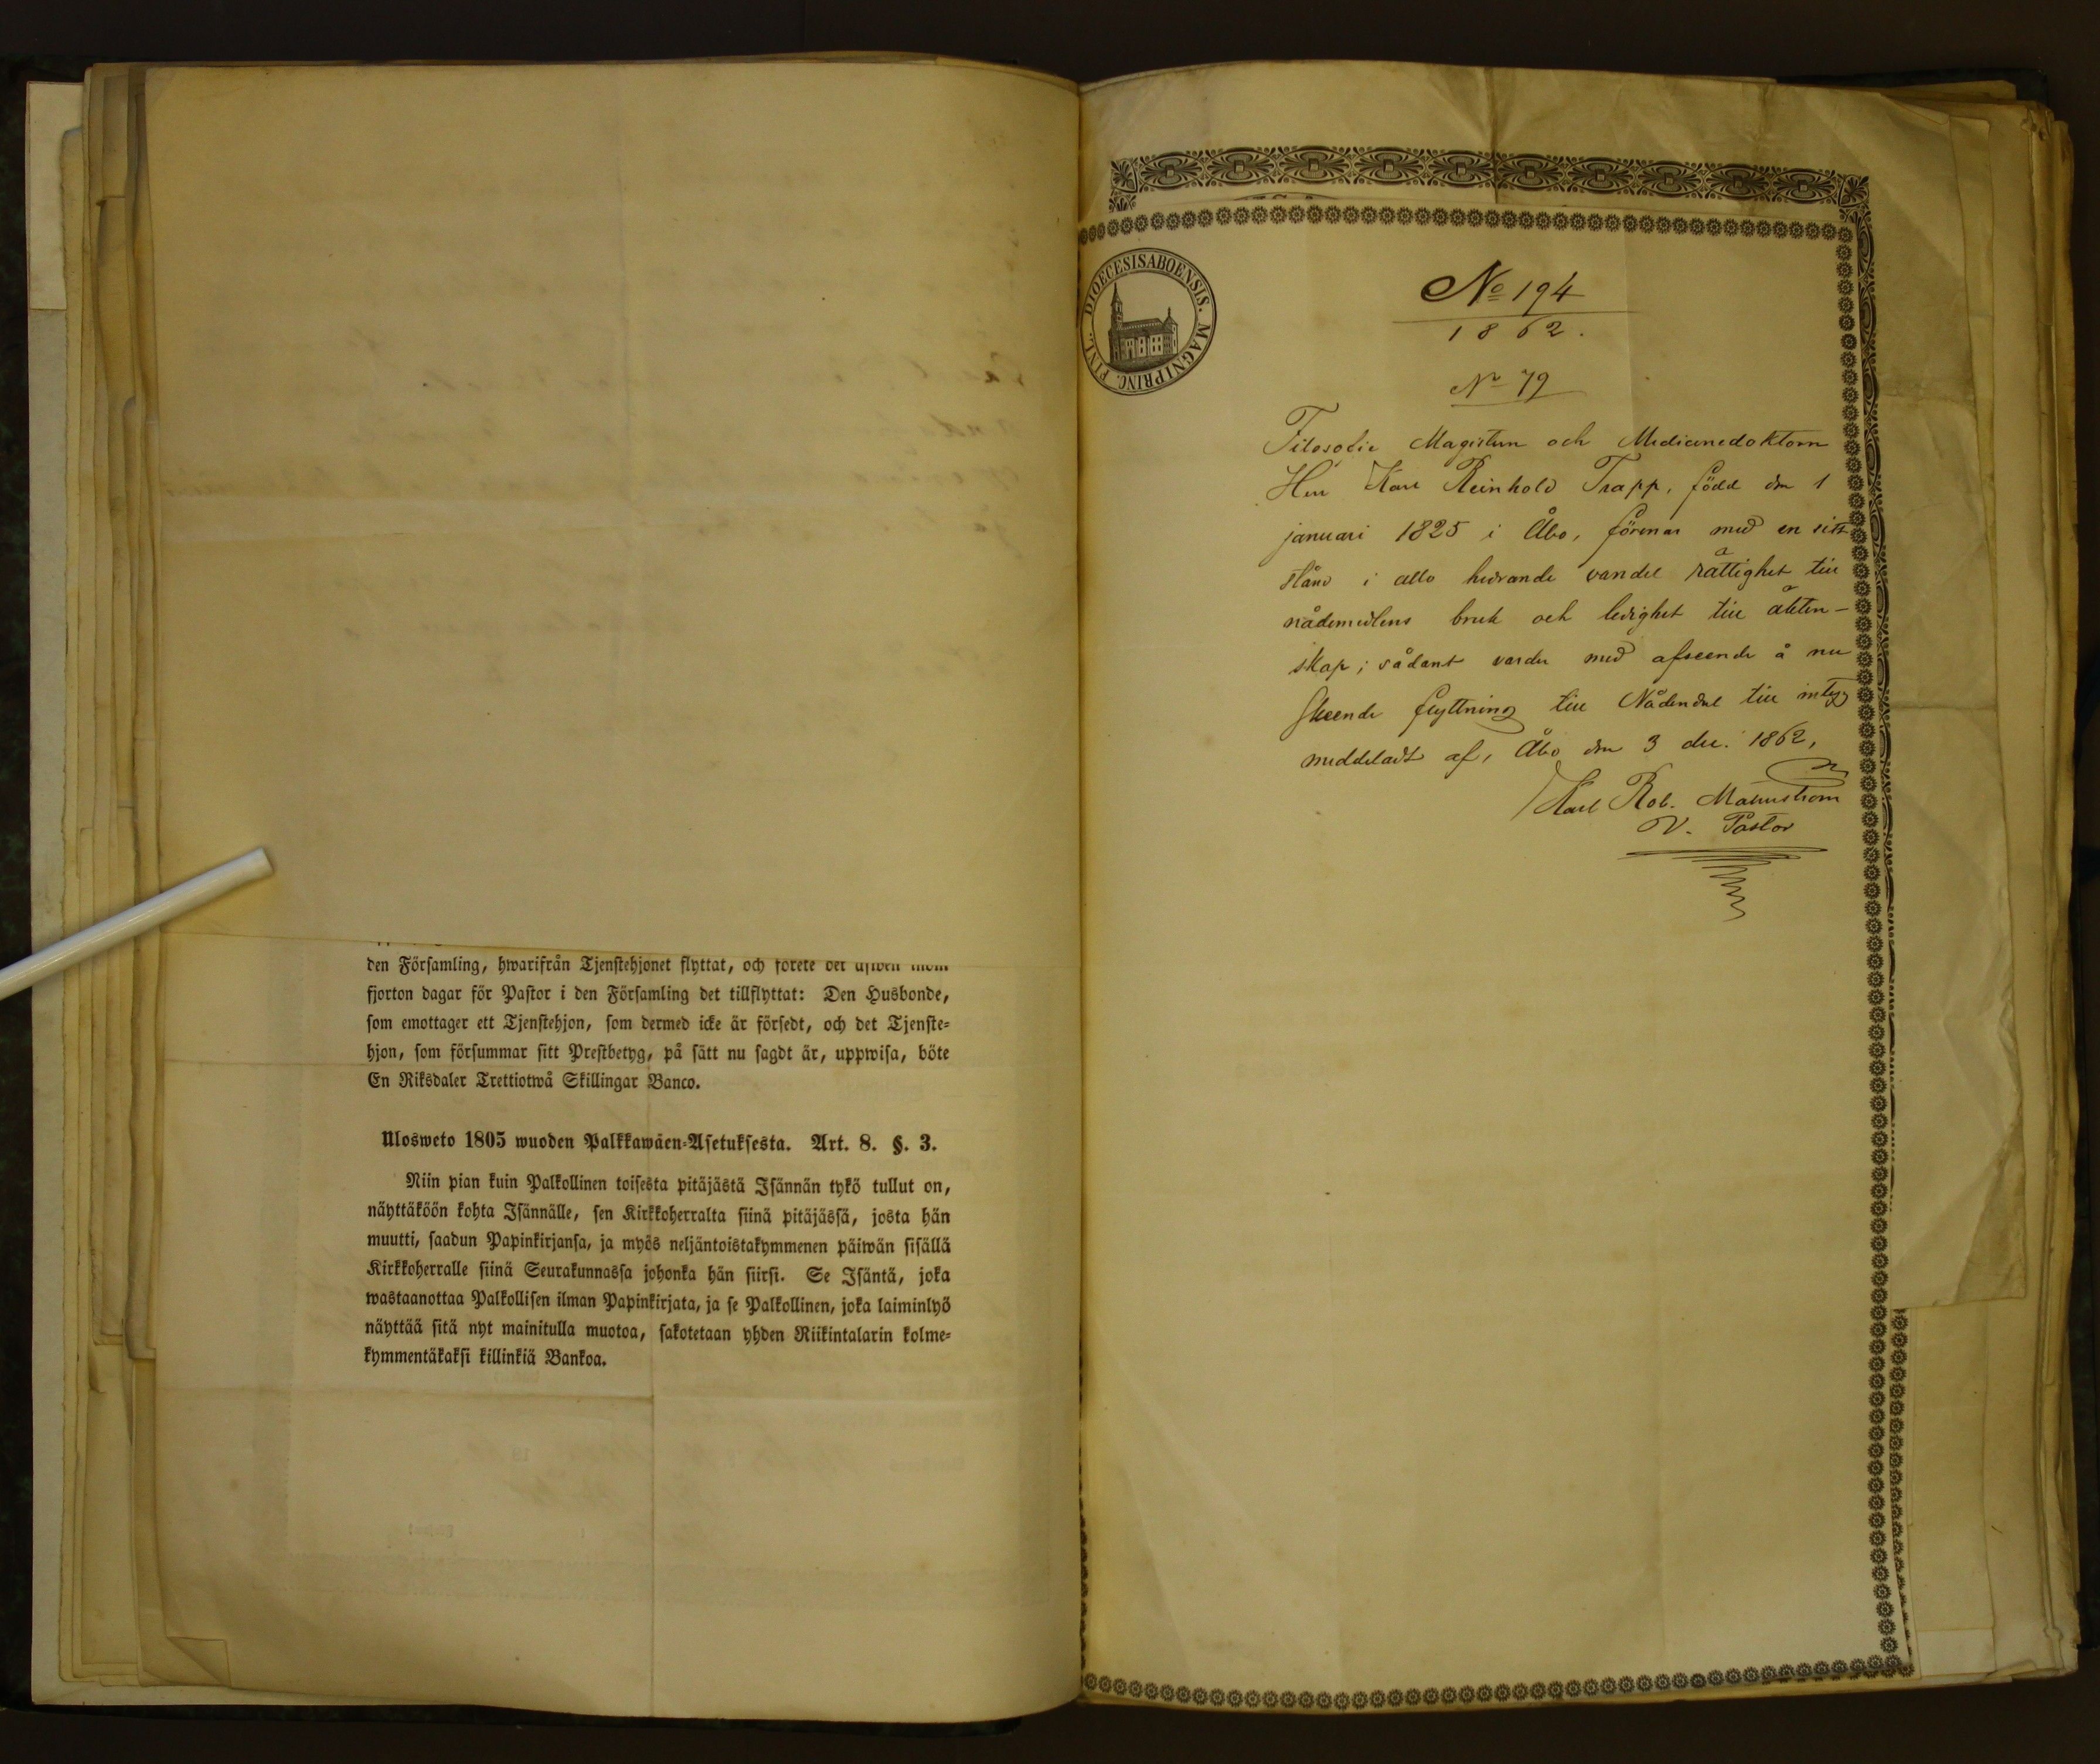 den Församling, hwarifrån Tjenstehjonet flyttat, och förete det äfwen inom
fjorton dagar för Pastor i den Församling det tillflyttat: Den Husbonde,
som emottager ett Tjenstehjon, som dermed icke är försedt, och det Tjenste=
hjon, som försummar sitt Prestbetyg, på sätt nu sagdt är, uppwisa, böte
En Riksdaler Trettiotwå Skillingar Banco.
Ulosweto 1805 wuoden Palkkawäen=Asetuksesta. Art. 8. §. 3.
Niin pian kuin Palkollinen toisesta pitäjästä Isännän tykö tullut on,
näyttäköön kohta Isännälle, sen Kirkkoherralta siinä pitäjässä, josta hän
muutti, saadun Papinkirjansa, ja myös neljäntoistakymmenen päiwän sisällä
Kirkkoherralle siinä Seurakunnassa johonka hän siirsi. Se Isäntä, joka
wastaanottaa Palkollisen ilman Papinkirjata, ja se Palkollinen, joka laiminlyö
näyttää sitä nyt mainitulla muotoa, sakotetaan yhden Riikintalarin kolme=
kymmentäkaksi killinkiä Bankoa.
DIOECESIS ABOENSIS. MAGNI PRINC. FINL.
No 194
1862.
No 79
Filosofie Magistern och Medicinedoktorn
Herr Karl Reinhold Trapp, född den 1
januari 1825 i Åbo, förenar med en sitt
stånd i allo hedrande vandel rättighet till
nådemedlens bruk och ledighet till äkten-
skap; sådant varder med afseende å nu
skeende flyttning till Nådendal till intyg
meddeladt af, Åbo den 3 dec. 1862,
Karl Rob. Malmström
V. Pastor